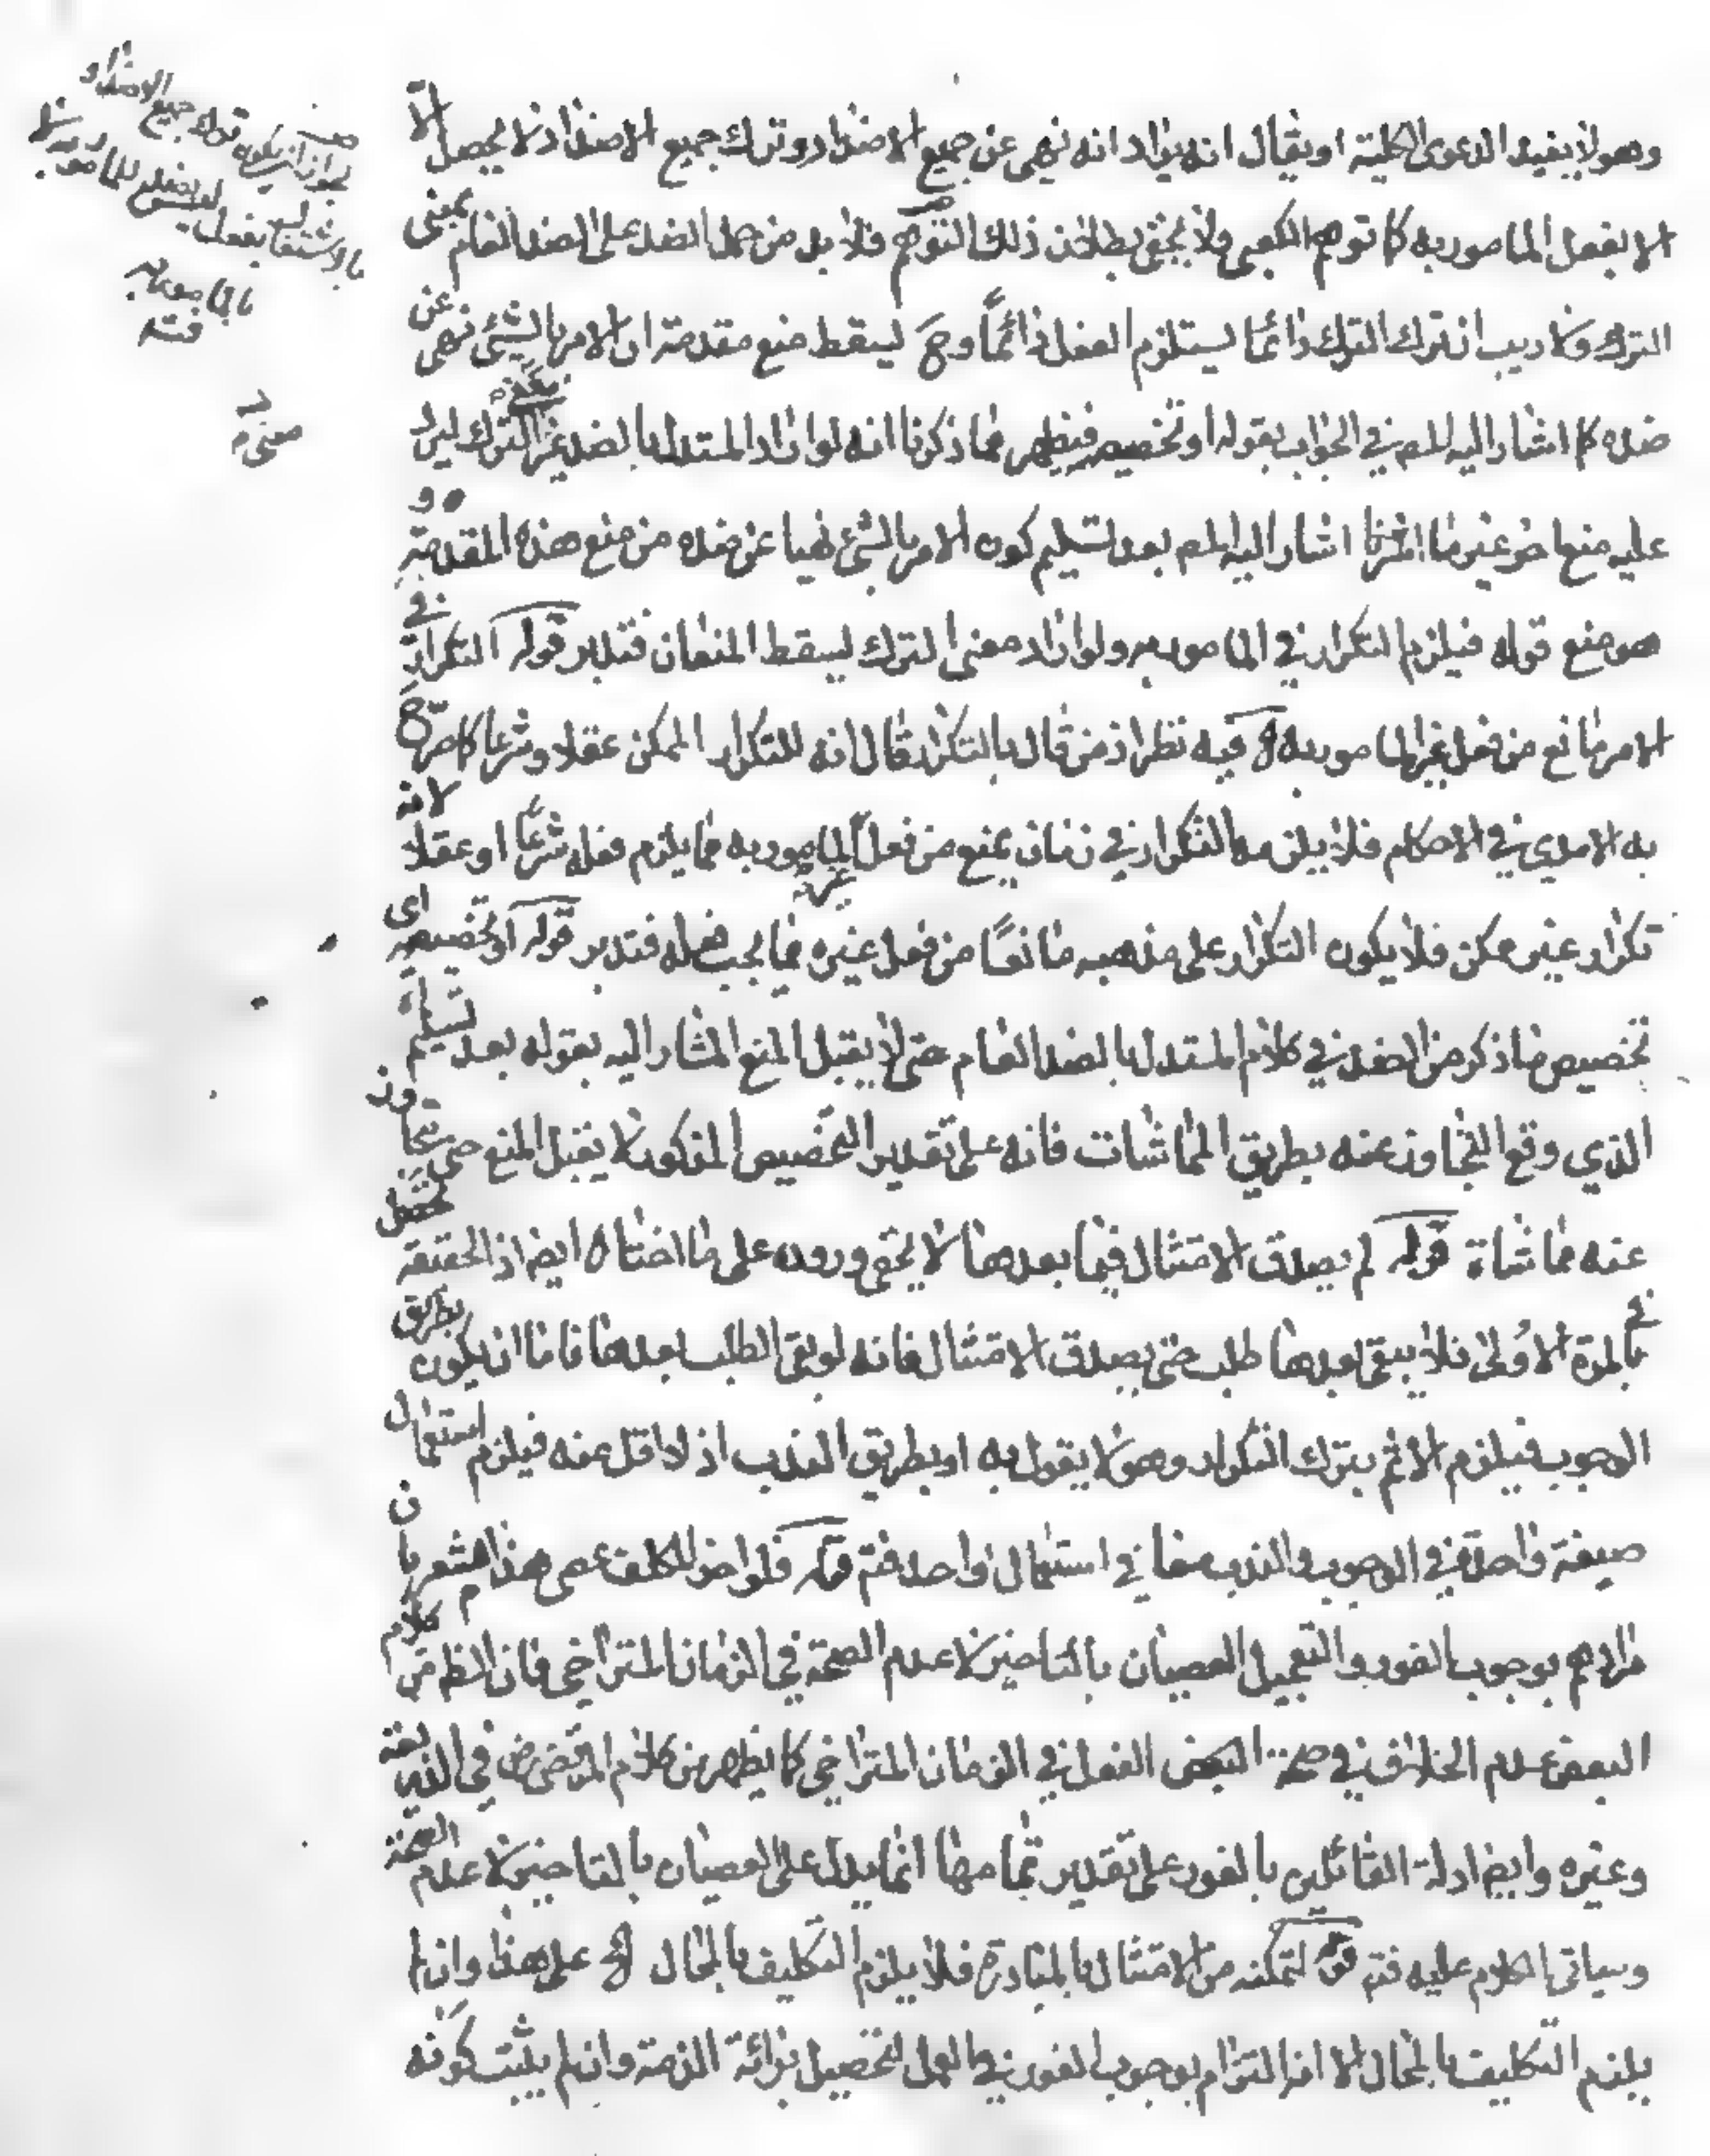 وهو لا يفيد الدعوى الكلية او يقال انه يراد انه نهى عن جميع الاضداد وترك جميع الاضداد لا يحصل الا
الا بفعل المامور به كما توهم الكعبى ولا يخفى بطلان ذلك التوهم فلا بد من حمل الضد على الضد العام بمعنى
الترك ولا ريب ان ترك الترك دائما يستلزم الفعل دائماً وح يسقط منع مقدمة ان الامر بالشئ نهى عن
ضده كما اشار اليه المص في الجواب بقوله او تخصيصه فيظهر مما ذكرنا انه لو اراد المستدل بالضد غير الترك ليرد
عليه منع اخر غير ما اشار اليه المص بعد تسليم كون الامر بالشئ نهيا عن ضده من منع هذه المقدمة و
هو منع قوله فيلزم التكرار في المامور به ولو اراد معنى الترك يسقط المنعان فتدبر قوله التكرار في
الامر مانع من فعل غير المامور به اه فيه نظر اذ من قال بالتكرار قال انه للتكرار الممكن عقلا وشرعا كما صرح
به الامدي في الاحكام فلا يلزمه التكرار في زمان يمنع من فعل غير المامور به مما يلزم فعله شرعا او عقلا لانه
تكرار غير ممكن فلا يكون التكرار على مذهبه مانعاً من فعل غيره مما يجب فعله فتدبر قوله او تخصيصه اى
تخصيص ما ذكر من الضد في كلام المستدل بالضد العام حتى لا يقبل المنع المشار اليه بقوله بعد تسليمه
الذي وقع التجاوز عنه بطريق المماشات فانه على تقدير التخصيص المذكور لا يقبل المنع حتى يتجاوز
عنه مماشاة قوله لم يصدق الامتثال فيما بعدها لا يخفى وروده على ما اختاره ايضا اذ الحقيقة تحصل
بالمرة الاولى فلا يبقى بعدها طلب حتى يصدق الامتثال فانه لو بقى الطلب بعدها فاما ان يكون بطريق
الوجوب فيلزم الاثم بترك التكرار وهو لا يقول به او بطريق الندب اذ لا اقل عنه فيلزم استعمال
صيغة واحدة في الوجوب والندب معا في استعمال واحد فتم قوله فلو اخر المكلف عصى هذا مشعر بان
مرادهم بوجوب الفور والتعجيل العصيان بالتاخير لا عدم الصحة في الزمان المتراخي فان الظ من كلام
البعض عدم الخلاف في صحة الفعل في الزمان المتراخي كما يظهر من كلام المرتضى رض في الذريعة
وغيره وايضا ادلة القائلين بالفور على تقدير تمامها انما يدل على العصيان بالتاخير لا عدم الصحة
وسياتي الكلام عليه فتم قوله لتمكنه من الامتثال بالمبادرة فلا يلزم التكليف بالمحال اه على هذا وان لم
يلزم التكليف بالمحال الا انه التزام بوجوب الفور في العمل لتحصيل برائة الذمة وان لم يثبت كونه